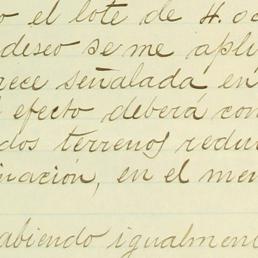 o el lote de 4. oc
deseo se me apli
rece señalada en
efecto deberá con
dos terrenos redu
inación, en el men
abiendo igualmen